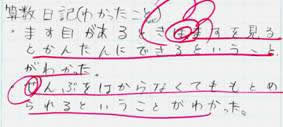 算数日記(わかったこと)
・ます目があるときはますを見る
とかんたんにできるということ
がわかった。
・ぜんぶをはからなくてももとめ
られるということがわかった。